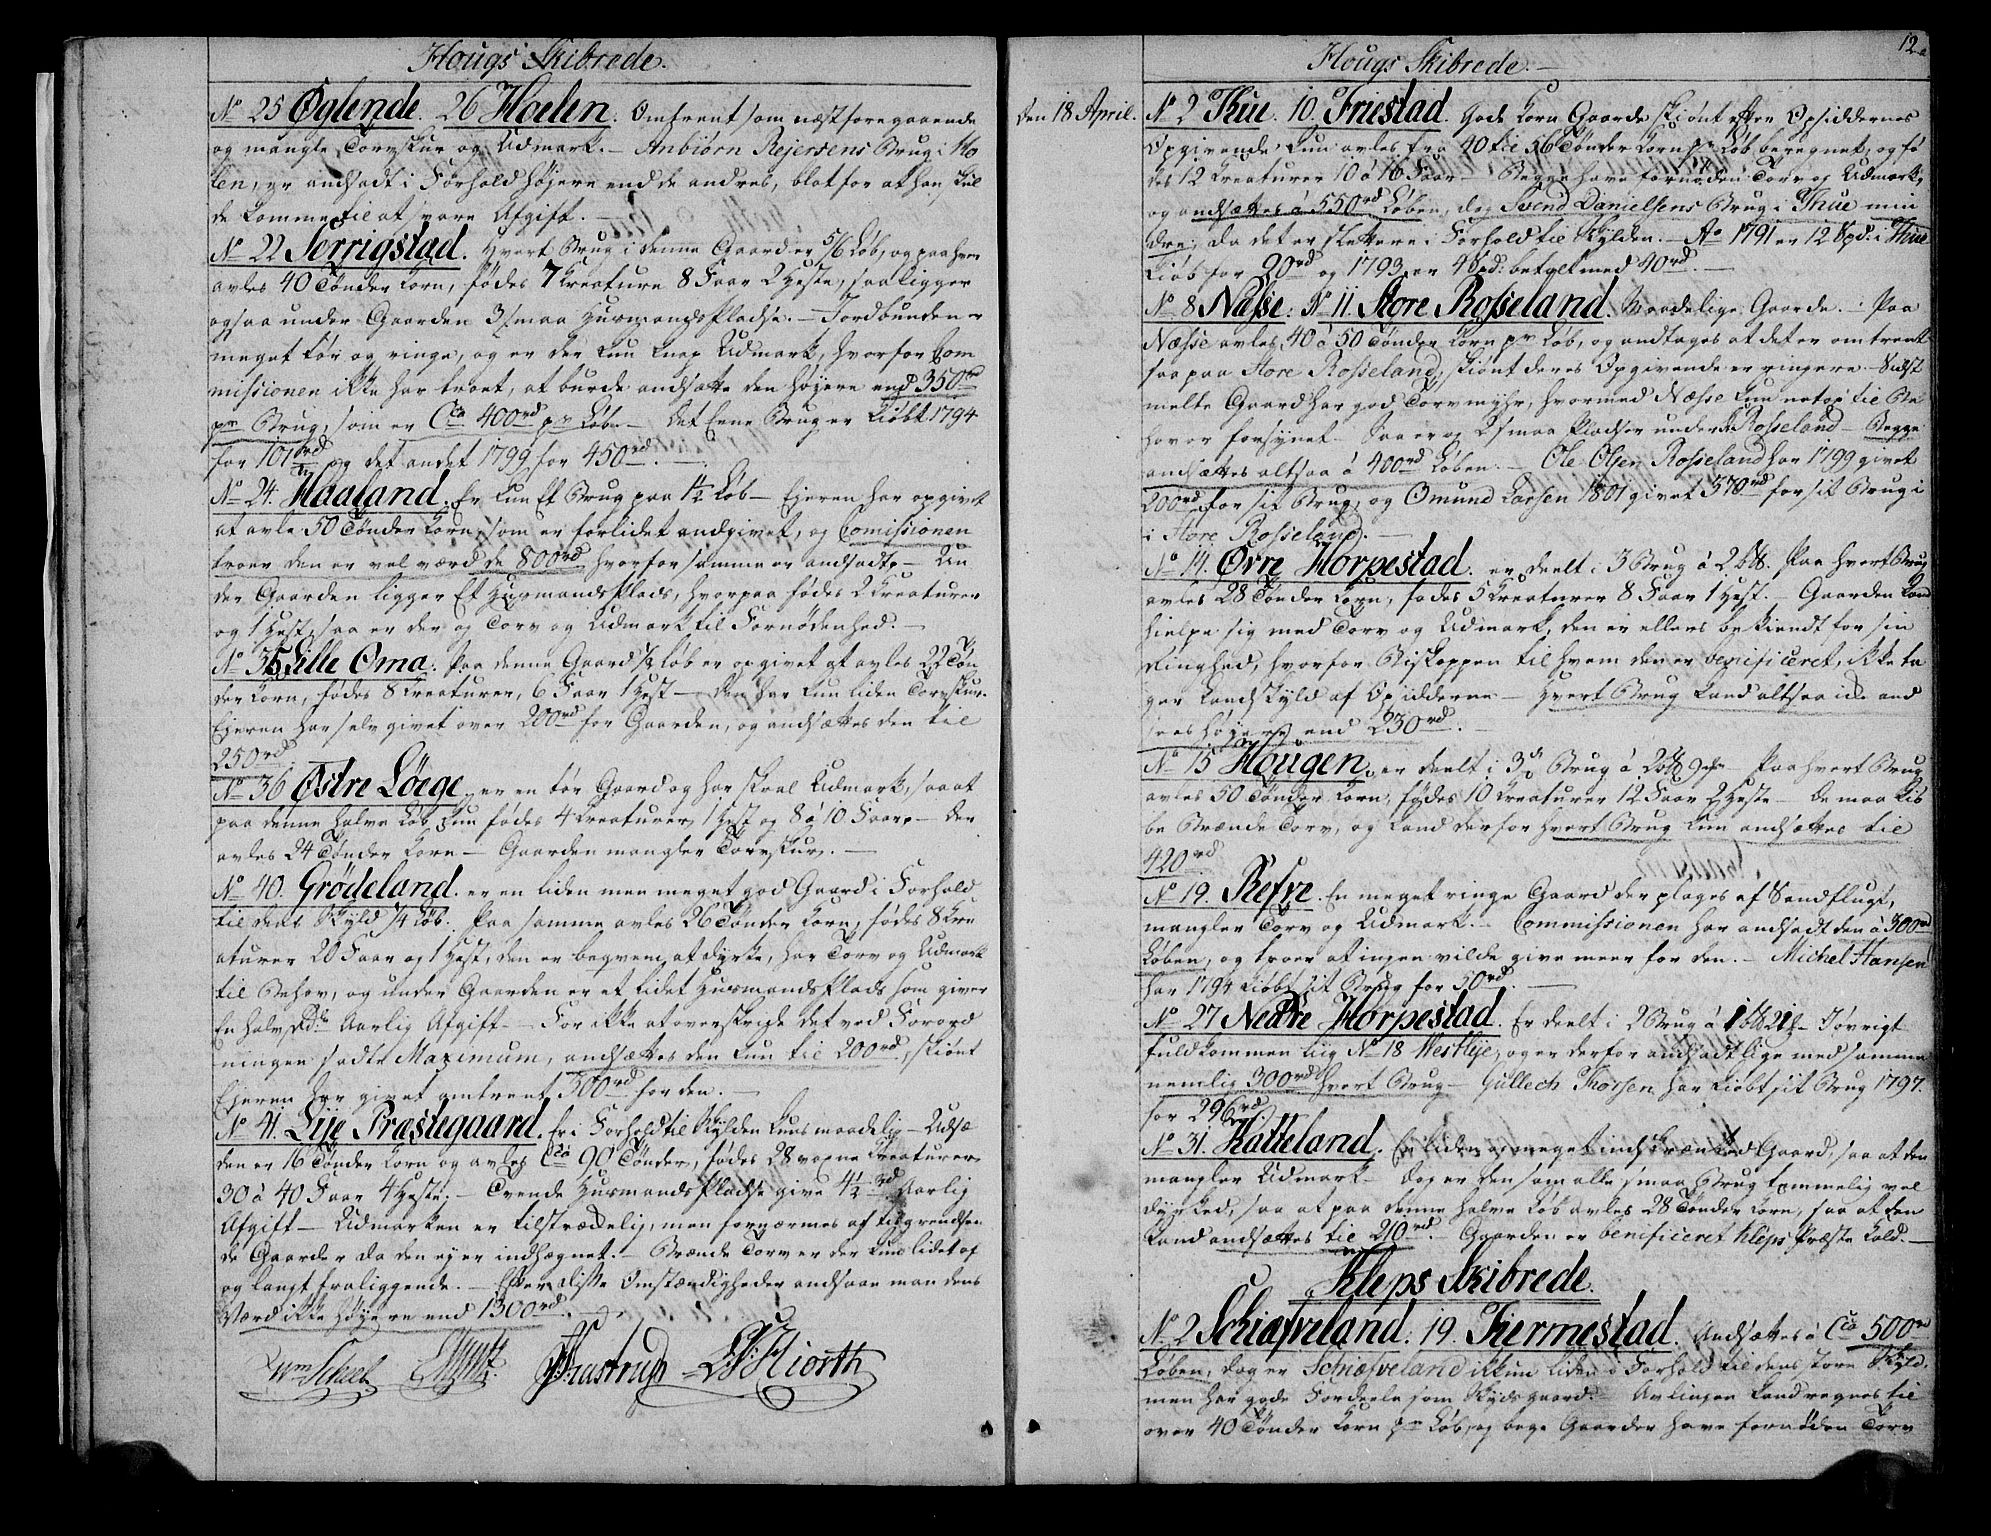 Hougs Skibrede.
No 25 Øglende. 26 Hoelen. Omtrent som næstforegaaende
og mangle Torvskur og Udmark. – Anbiørn Rejersens Brug i Ho
len, er andsadt i Forhold højere end de andres, blot for at han kul
de komme til at svare Afgift. –
No 22 Serrigstad. Hvert Brug i denne Gaard er 5/6 Løb, og paa hver
avles 40 Tønder Korn, fødes 7 Kreature 8 Faar 2 Heste, saa ligger
ogsaa under Gaarden 3 smaa Husmandspladse. – Jordbunden er
meget tør og ringe, og er der kun knap Udmark, hvorfor Com
missionen ikke har troet, at burde andsætte den højere end 350rd
pr Brug, som er Cca 400rd pr Løb – Det Eene Brug er kiøbt 1794
for 101rd og det andet 1799 for 450rd. –
No 24. Haaland. Er kun Et Brug paa 1½ Løb – Ejeren har opgivet
at avle 50 Tønder Korn, som er forlidet andgivet, og Comissionen
troer den er vel værd de 800rd hvorfor samme er andsadt – Un
der Gaarden ligger Et Husmandsplads, hvorpaa fødes 2 Kreaturer
og 1 Hest, saa er der og Torv og Udmark til Fornødenhed. –
No 35 Lille Oma. Paa denne Gaard ½ Løb er opgivet at avles 22 Tøn
der Korn, fødes 8 Kreaturer, 6 Faar 1 Hest – Den har kun liden Torvskur.
Ejeren har selv givet over 200rd for Gaarden, og andsættes den til
250rd.
No 36 Østre Løege, er en tør Gaard og har skral Udmark, saa at
paa denne halve Løb kun fødes 4 Kreaturer, 1 Hest og 8 à 10 Faar – Der
avles 24 Tønder Korn – Gaarden mangler Torvskur. –
No 40. Grødeland. er en liden men meget god Gaard i Forhold
til dens Skyld ¼ Løb. Paa samme avles 26 Tønder Korn, fødes 8 Kre
aturer 20 Faar og 1 Hest, den er beqvem at dyrke, har Torv og Udmark
til Behov, og under Gaarden er et lidet Husmandsplads som giver
En halv Rdlr Aarlig Afgift – For ikke at overskride det ved Forord
ningen sadte Maximum, andsættes den kun til 200rd, skiønt
Ejeren har givet omtrent 300rd for den. –
No 41. Lije Præstegaard. Er i Forhold til Skylden kuns maadelig – Udsæ
den er 16 Tønder Korn og avles Cca 90 Tønder, fødes 28 voxne Kreaturer
30 à 40 Faar 4 Heste. – Tvende Husmandspladse give 4½rd Aarlig
Afgift – Udmarken er tilstrækkelig, men fornærmes af tilgrendsen
de Gaarder da den ej er indhægnet. – Brænde Torv er der kun lidet af
og langt fraliggende. – Efter disse Omstændigheder andsaae man dens
Værd ikke høyere end 1300rd. –
Wm Scheel Hiorth
12
Hougs Skibrede. –
Den 18 April.
No 2 Thue. 10. Friestad. Gode Korn Gaarde skiønt efter Opsiddernes
Opgivende kun avles fra 40 til 56 Tønder Korn pr Løb beregnet, og fø
des 12 Kreaturer 10 à 16 Faar – Begge have fornøden Torv og Udmark,
og andsættes à 550rd Løben, dog Svend Danielsens Brug i Thue min
dre, da det er slettere i Forhold til Skylden. – Ao 1791 er 12 Spd: i Thue
kiøbt for 20rd og 1793 er 4 Spd: betalt med 40rd. –
No 8 Næsse. No 11. Store Rosseland. Maadelige Gaarde. – Paa
Næsse avles 40 à 50 Tønder Korn pr Løb, og andtages at det er omtrent
saa paa Store Rosseland, skiønt deres Opgivende er ringere – Sidst
melte Gaard har god Torvmyhr, hvormed Næsse kun notop til Be
hov er forsynet. Saa er og 2 smaa Pladser under Rosseland – Begge
andsættes altsaa à 400rd Løben. – Ole Olsen Rosseland har 1799 givet
200rd for sit Brug, og Omund Larsen 1801 givet 570rd for sit Brug i
i Store Rosseland. –
No 14. Øvre Horpestad. er deelt i 3 Brug à 2 Paa hvert Brug
avles 28 Tønder Korn, fødes 5 Kreaturer 8 Faar 1 Hest. Gaarden kand
hielpe sig med Torv og Udmark, den er ellers bekiendt for sin
Ringhed, hvorfor Biskoppen til hvem den er benificeret, ikke ta
ger Landskyld af Opsidderne – Hvert Brug kand altsaa icke and
sees højere end 230rd.
No 15 Hougen, er deelt i 3 Brug à 2 – Paa hvert Brug
avles 50 Tønder Korn, fødes 10 Kreaturer 12 Faar 2 Heste – De maa kiø
be Brænde Torv, og kand derfor hvert Brug kun andsættes til
420rd
No 19. Refve. En meget ringe Gaard der plages af Sandflugt,
mangler Torv og Udmark. – Commissionen har andsadt den à 300rd
Løben, og troer at ingen vilde give meer for den. – Michel Hansen
har 1794 kiøbt sit Brug for 50rd. –
No 27 Nedre Horpestad. Er deelt i 2 Brug à – Iøvrigt
fuldkommen liig No 18 Westlije, og er derfor andsadt lige med samme
nemlig 300rd hvert Brug – Gullech Thorsen har kiøbt sit Brug 1797.
for 296rd.
No 31. Katteland. En liden og meget indskrænket Gaard, saa at den
mangler Udmark – Dog er den som alle smaa Brug temmelig vel
dyrked, saa at paa denne halve Løb avles 28 Tønder Korn, saa at den
kand andsættes til 210rd. – Gaarden er benificeret Kleps Præste Kald. –
Kleps Skibrede.
No 2 Schiæfveland. 19. Tiermestad. Andsættes à Cca 500rd
Løben, dog er Schiæfveland ikkun liden i Forhold til dens store Skyld.
men har gode Fordeele som Skydsgaard. Avlingen kand regnes til
over 40 Tønder Korn pr Løb, og bege Gaarder have fornøden Torv